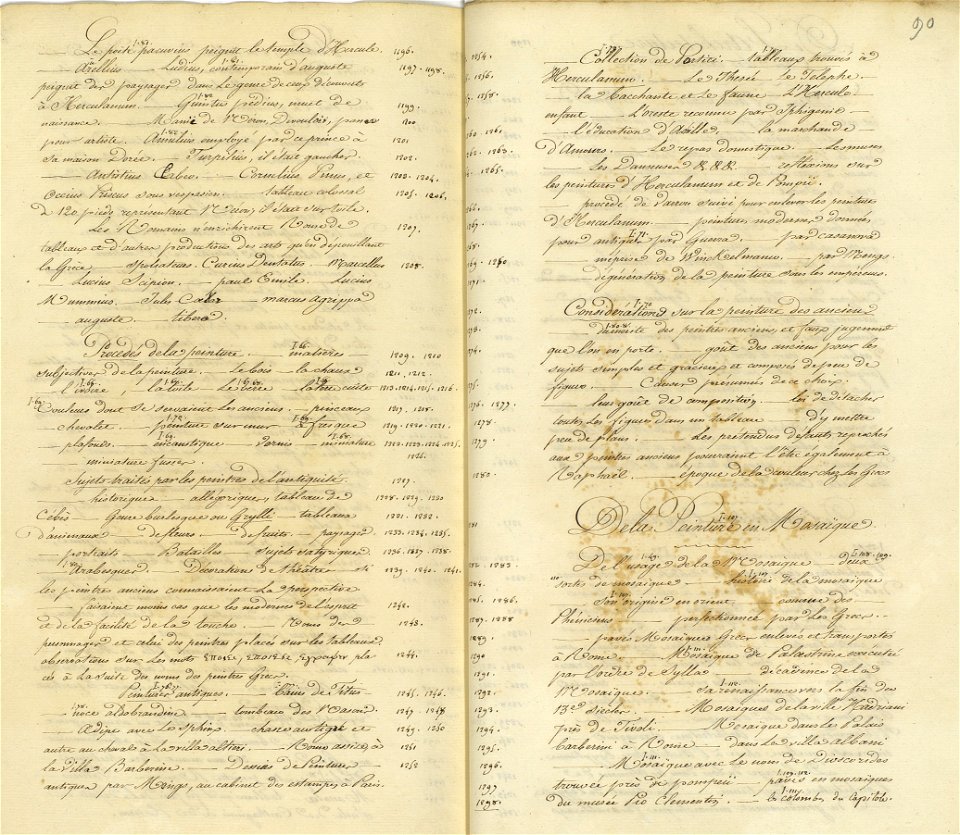 Le poëte pacuvius peignit le temple d'Hercule. 1196.
— Arellius — Ludius, contemporain d'auguste 1197. 1198.
peignit des paysages dans le genre de ceux découverts
à Herculanum — Quintus pedius, muet de 1199.
naissance. — Manie de Néron, de vouloir, passer 1200
pour artiste. Amulius employé par ce prince à 1201
sa maison Dorée. — Turpilius, il était gaucher 1202.
— Antistius Labeo. — Cornelius Pinus, et 1203. 1204.
Accius Priscus sous vespasien. — tableau colossal 1205. 1206.
de 120 pieds représentant Néron, il était sur toile.
Les Romains n'enrichirent Rome de 1207.
tableaux et d'autres productions des arts qu'en dépouillant
la Grèce — spoliateurs. Curius Dentatus. — Marcellus 1208
— Lucius Scipion. — paul Emile. — Lucius
Mummius. — Jules César — marcus agrippa
— auguste — tibère.
Procédés de la peinture. — matières 1209. 1210
subjectives de la peinture. — le bois — la chaux 1211. 1212.
— l'ivoire, — la toile — le verre — la terre cuite 1213. 1214. 1215. 1216.
Couleurs dont se servaient les anciens. — pinceaux 1217. 1218.
chevalet. — peinture sur mur — à fresque 1219. 1220. 1221.
— plafonds. — encaustique — vernis — miniature 1222. 1223. 1224. 1225.
— miniature fusée. 1226.
Sujets traités par les peintres de l'antiquité. 1227.
— historique — allégorique, tableau de 1228. 1229. 1230
Cébès — Genre burlesque ou Grylle — tableaux 1231. 1232.
d'animaux — de fleurs. — de fruits — paysages 1233. 1234. 1235.
— portraits. — Batailles — sujets satyriques 1236. 1237. 1238.
— Arabesques. — Décorations de théâtre — si 1239. 1240. 1241.
les peintres anciens connaissaient la perspective
— faisaient moins cas que les modernes de l'esprit 1242.
et de la facilité de la touche. — Noms des 1243.
personnages et celui des peintres placés sur les tableaux
observations sur les mots pla 1244.
cés à la suite des noms des peintres Grecs.
Peintures antiques. — Bains de Titus 1245. 1246.
— noce aldobrandine — tombeau des Nasons 1247. 1248
— Œdipe avec le Sphinx — chasse au tigre et 1249. 1250
autre au cheval à la villa altieri. — Rome assise, à 1251
la Villa Barberine. — Dessins de Peintures 1252
antiques par Mengs, au cabinet des estampes à Paris.
90
Collection de Portici. tableaux trouvés à
Herculanum. — Le Thesée le Telephe.
— la Bacchante et le faune L'Hercule
enfant — L'oreste reconnu par Iphigenie
— l'éducation d'Achille, la marchande
d'Amours. — Le repas domestique. — Les muses
— Les Danseuses &.&.&. — réflexions sur
les peintures d'Herculanum et de Pompeii.
— procédé de suivi pour enlever les peintures
d'Herculanum — peintures modernes données
pour antiques par Guerra. — par casanova
— méprise de Winckelmann. — par Mengs.
— dégénération de la peinture sous les empereurs.
Considérations sur la peinture des anciens
— des peintres anciens et faux jugement
que l'on en porte. — goût des anciens pour les
sujets simples et gracieux et composés de peu de
figures. — Causes présumées de ce choix.
— leur goût de composition, — loi de détacher
toutes les figures dans un tableau — d'y mettre
peu de plans. — Les prétendus défauts reprochés
aux peintres anciens pourraient l'être également à
Raphaël. — époque de la couleur chez les Grecs
De la Peinture en Mosaïque
De l'usage de la Mosaïque deux
sortes de mosaïque — histoire de la mosaïque
— son origine en orient — connue des
Phéniciens — perfectionnée par les Grecs
— pavés Mosaïques Grecs enlevés et transportés
à Rome. — Mosaïque de Palestrine exécutée
par l'ordre de Sylla — décadence de la
Mosaïque. — Sa renaissance vers la fin du
13e siècle. — Mosaïques de la ville Hadriani
près de Tivoli. — Mosaïque dans le Palais
barberini à Rome — dans la villa albani
— Mosaïque avec le nom de Dioscorides
trouvée près de pompeii — pavés en mosaïques
du musée Pio Clementin. — les colombes du Capitole.